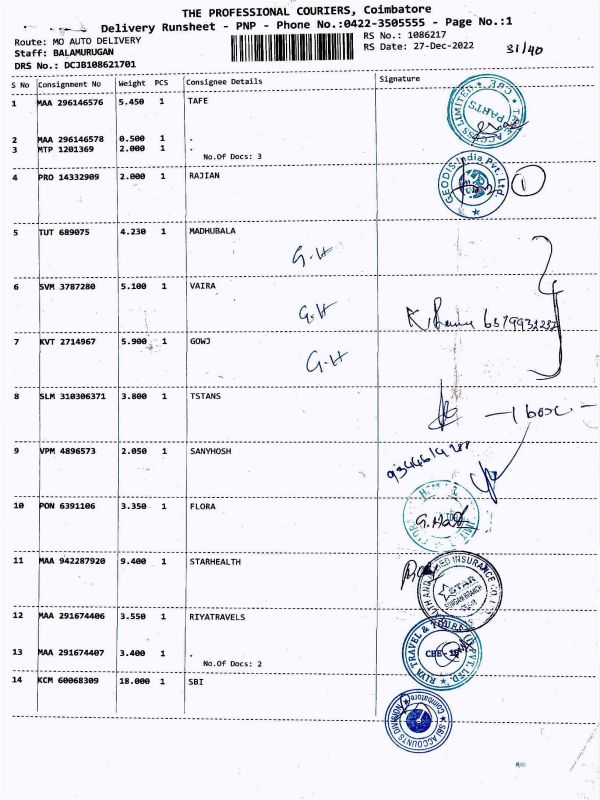 THE PROFESSIONAL COURIERS, Coimbatore
Delivery Runsheet - PNP - Phone No.:0422-3505555 - Page No.:1
Route: MO AUTO DELIVERY RS No.: 1086217
Staff: BALAMURUGAN RS Date: 27-Dec-2022 31/40
DRS No.: DCJB108621701
S No Consignment No Weight PCS Consignee Details Signature
1 MAA 296146576 5.450 1 TAFE
TAFE ACCESS LIMITED CBE PARTS
2 MAA 296146578 0.500 1 .
3 MTP 1201369 2.000 1 .
No.Of Docs: 3
4 PRO 14332909 2.000 1 RAJIAN
GEODIS India Pvt. Ltd. 1
5 TUT 689075 4.230 1 MADHUBALA
G.H
6 SVM 3787280 5.100 1 VAIRA
G.H
7 KVT 2714967 5.900 1 GOWJ
G.H
8 SLM 310306371 3.800 1 TSTANS
1 box
9 VPM 4896573 2.050 1 SANYHOSH
10 PON 6391106 3.350 1 FLORA
11 MAA 942287920 9.400 1 STARHEALTH
INSURANCE CO. STAR BRANCH
12 MAA 291674406 3.550 1 RIYATRAVELS
RIYA TRAVEL & TOURS (I) PVT. LTD. CBE-18
13 MAA 291674407 3.400 1 .
No.Of Docs: 2
14 KCM 60068309 18.000 1 SBI
SBI ACCOUNTS DIVISION Coimbatore